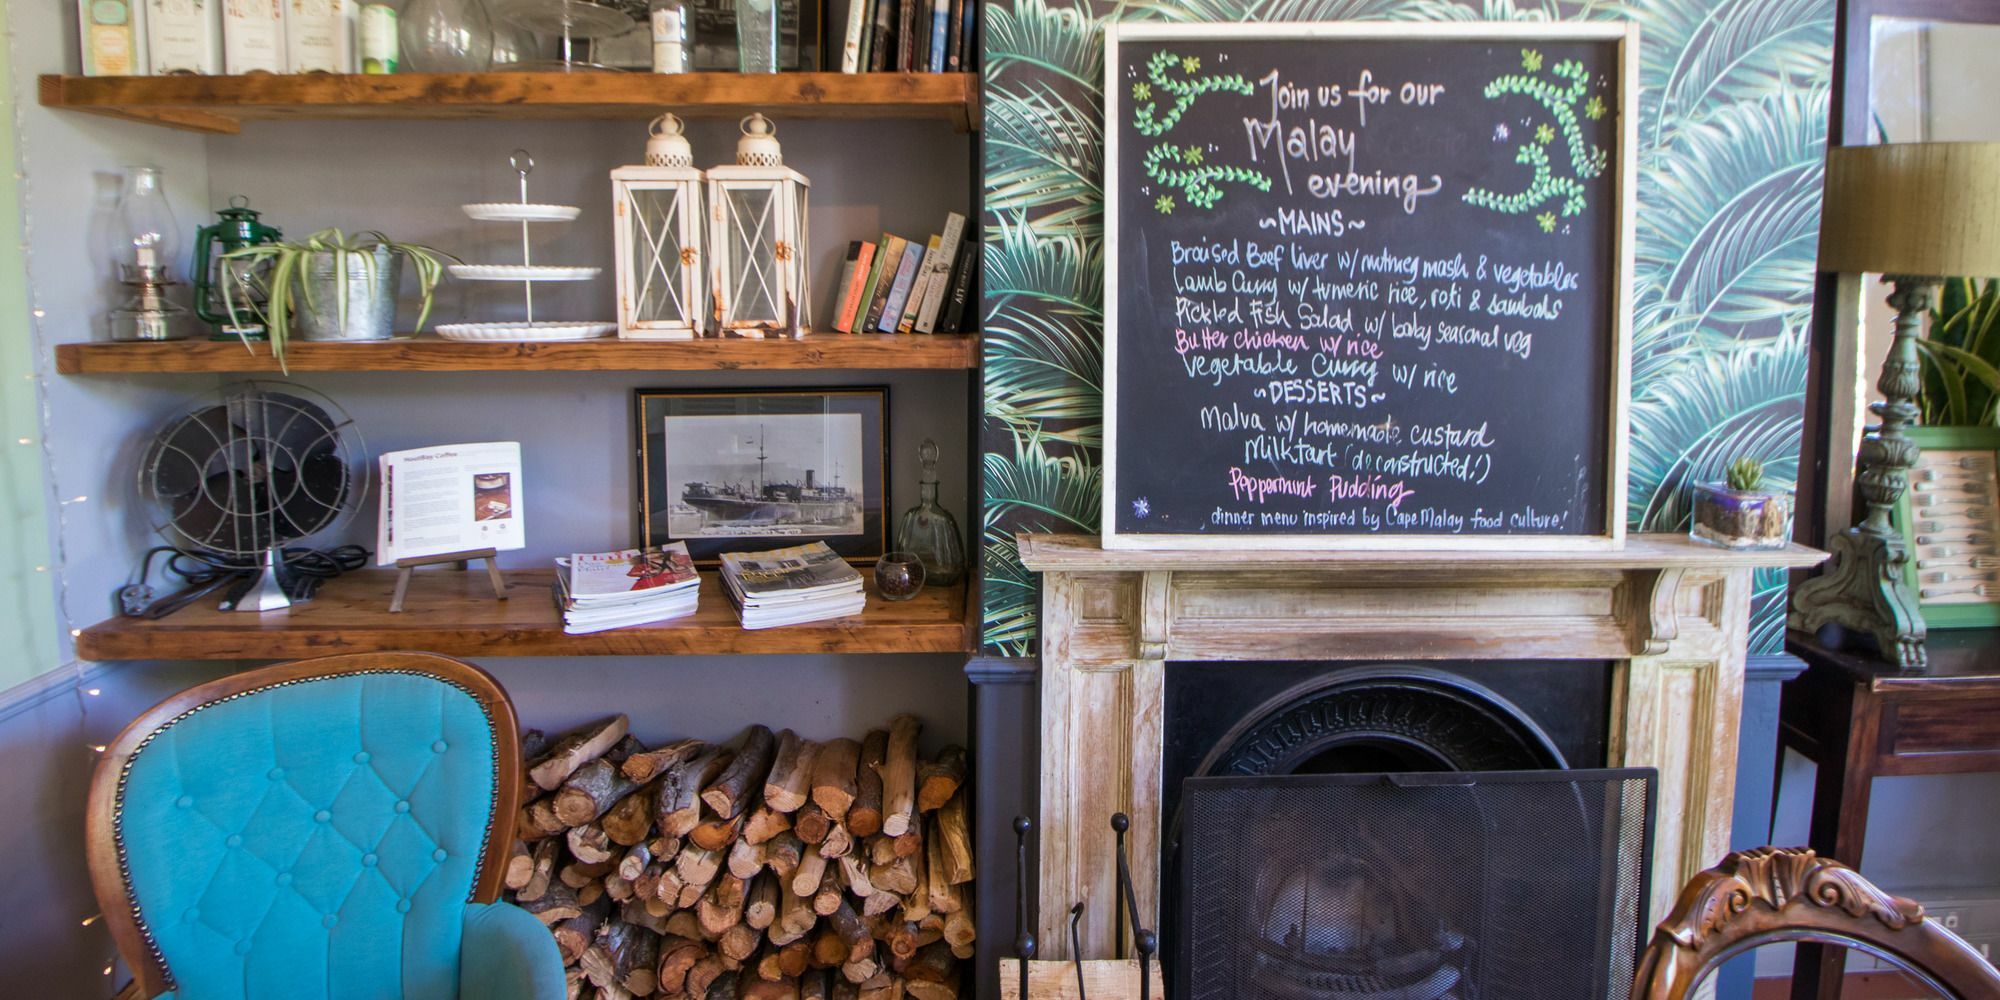 Join us for our
Malay
evening
~MAINS~
Braised Beef liver w/ nutmeg mash & vegetables
Lamb Curry w/ tumeric rice, roti & sambals
Pickled Fish Salad w/ baby seasonal veg
Butter chicken w/ rice
Vegetable Curry w/ rice
~DESSERTS~
Malva w/ homemade custard
Milktart (deconstructed!)
Peppermint Pudding
dinner menu inspired by Cape Malay food culture!
HoutBay Coffee
LIV